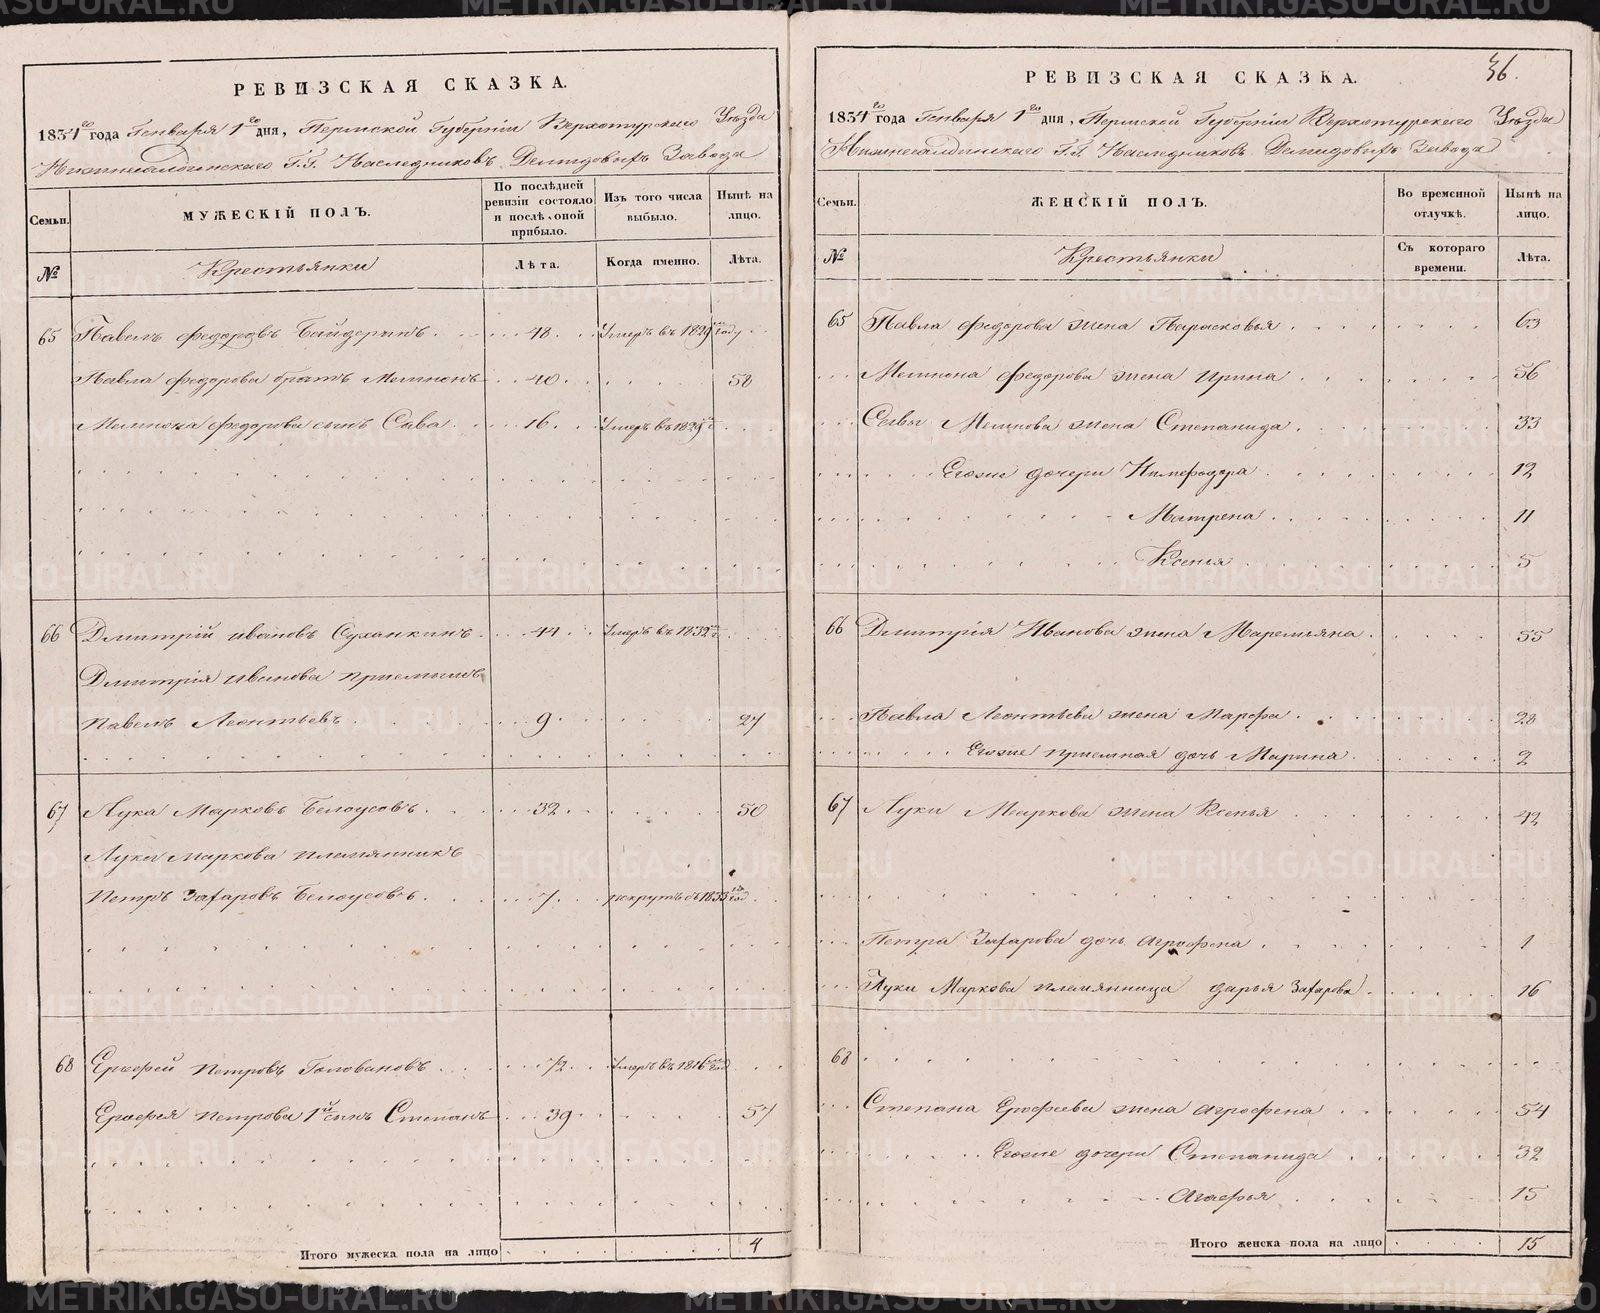 РЕВИЗСКАЯ СКАЗКА.
1834го года Генваря 1го дня, Пермской Губернiи Верхотурскаго Уѣзда
Нижнесалдинскаго Г.Г. Наслѣдниковъ Демидовыхъ Завода
Семьи.
МУЖЕСКIЙ ПОЛЪ.
По послѣдней ревизiи состояло и послѣ оной прибыло.
Изъ того числа выбыло.
Нынѣ на лицо.
№
Крестьянки
Лѣта.
Когда именно.
Лѣта.
65 Павелъ Федоровъ Байдеринъ 48 Умеръ въ 1829м году
Павла Федорова братъ Мемнонъ 40 58
Мемнона Федорова сынъ Сава 16 Умеръ въ 1829м г
66 Дмитрiй Ивановъ Суханкинъ 44 Умеръ въ 1832м г
Дмитрiя Иванова приемышъ
Павелъ Леонтьевъ 9 27
67 Лука Марковъ Белоусовъ 32 50
Луки Маркова племянникъ
Петръ Захаровъ Белоусовъ 7 рекрутъ въ 1833 год
68 Ерофей Петровъ Головановъ 72 Умеръ въ 1816м год
Ерофея Петрова 1й сынъ Степанъ 39 57
Итого мужеска пола на лицо 4
36.
РЕВИЗСКАЯ СКАЗКА.
1834го года Генваря 1го дня, Пермской Губернiи Верхотурскаго Уѣзда
Нижнесалдинскаго Г.Г. Наслѣдниковъ Демидовыхъ Завода
Семьи.
ЖЕНСКIЙ ПОЛЪ.
Во временной отлучкѣ.
Нынѣ на лицо.
№
Крестьянки
Съ котораго времени.
Лѣта.
65 Павла Федорова жена Парасковья 63
Мемнона Федорова жена Ирина 56
Савы Мемнова жена Степанида 33
Егоже дочери Нимфодора 12
Матрена 11
Ксенья 5
66 Дмитрiя Иванова жена Маремьяна 55
Павла Леонтьева жена Марфа 28
Егоже приемная дочь Марина 2
67 Луки Маркова жена Ксенья 42
Петра Захарова дочь Агрофена 1
Луки Маркова племянница Дарья Захарова 16
68
Степана Ерофеева жена Агрофена 54
Егоже дочери Степанида 32
Агафья 15
Итого женска пола на лицо 15
METRIKI.GASO-URAL.RU